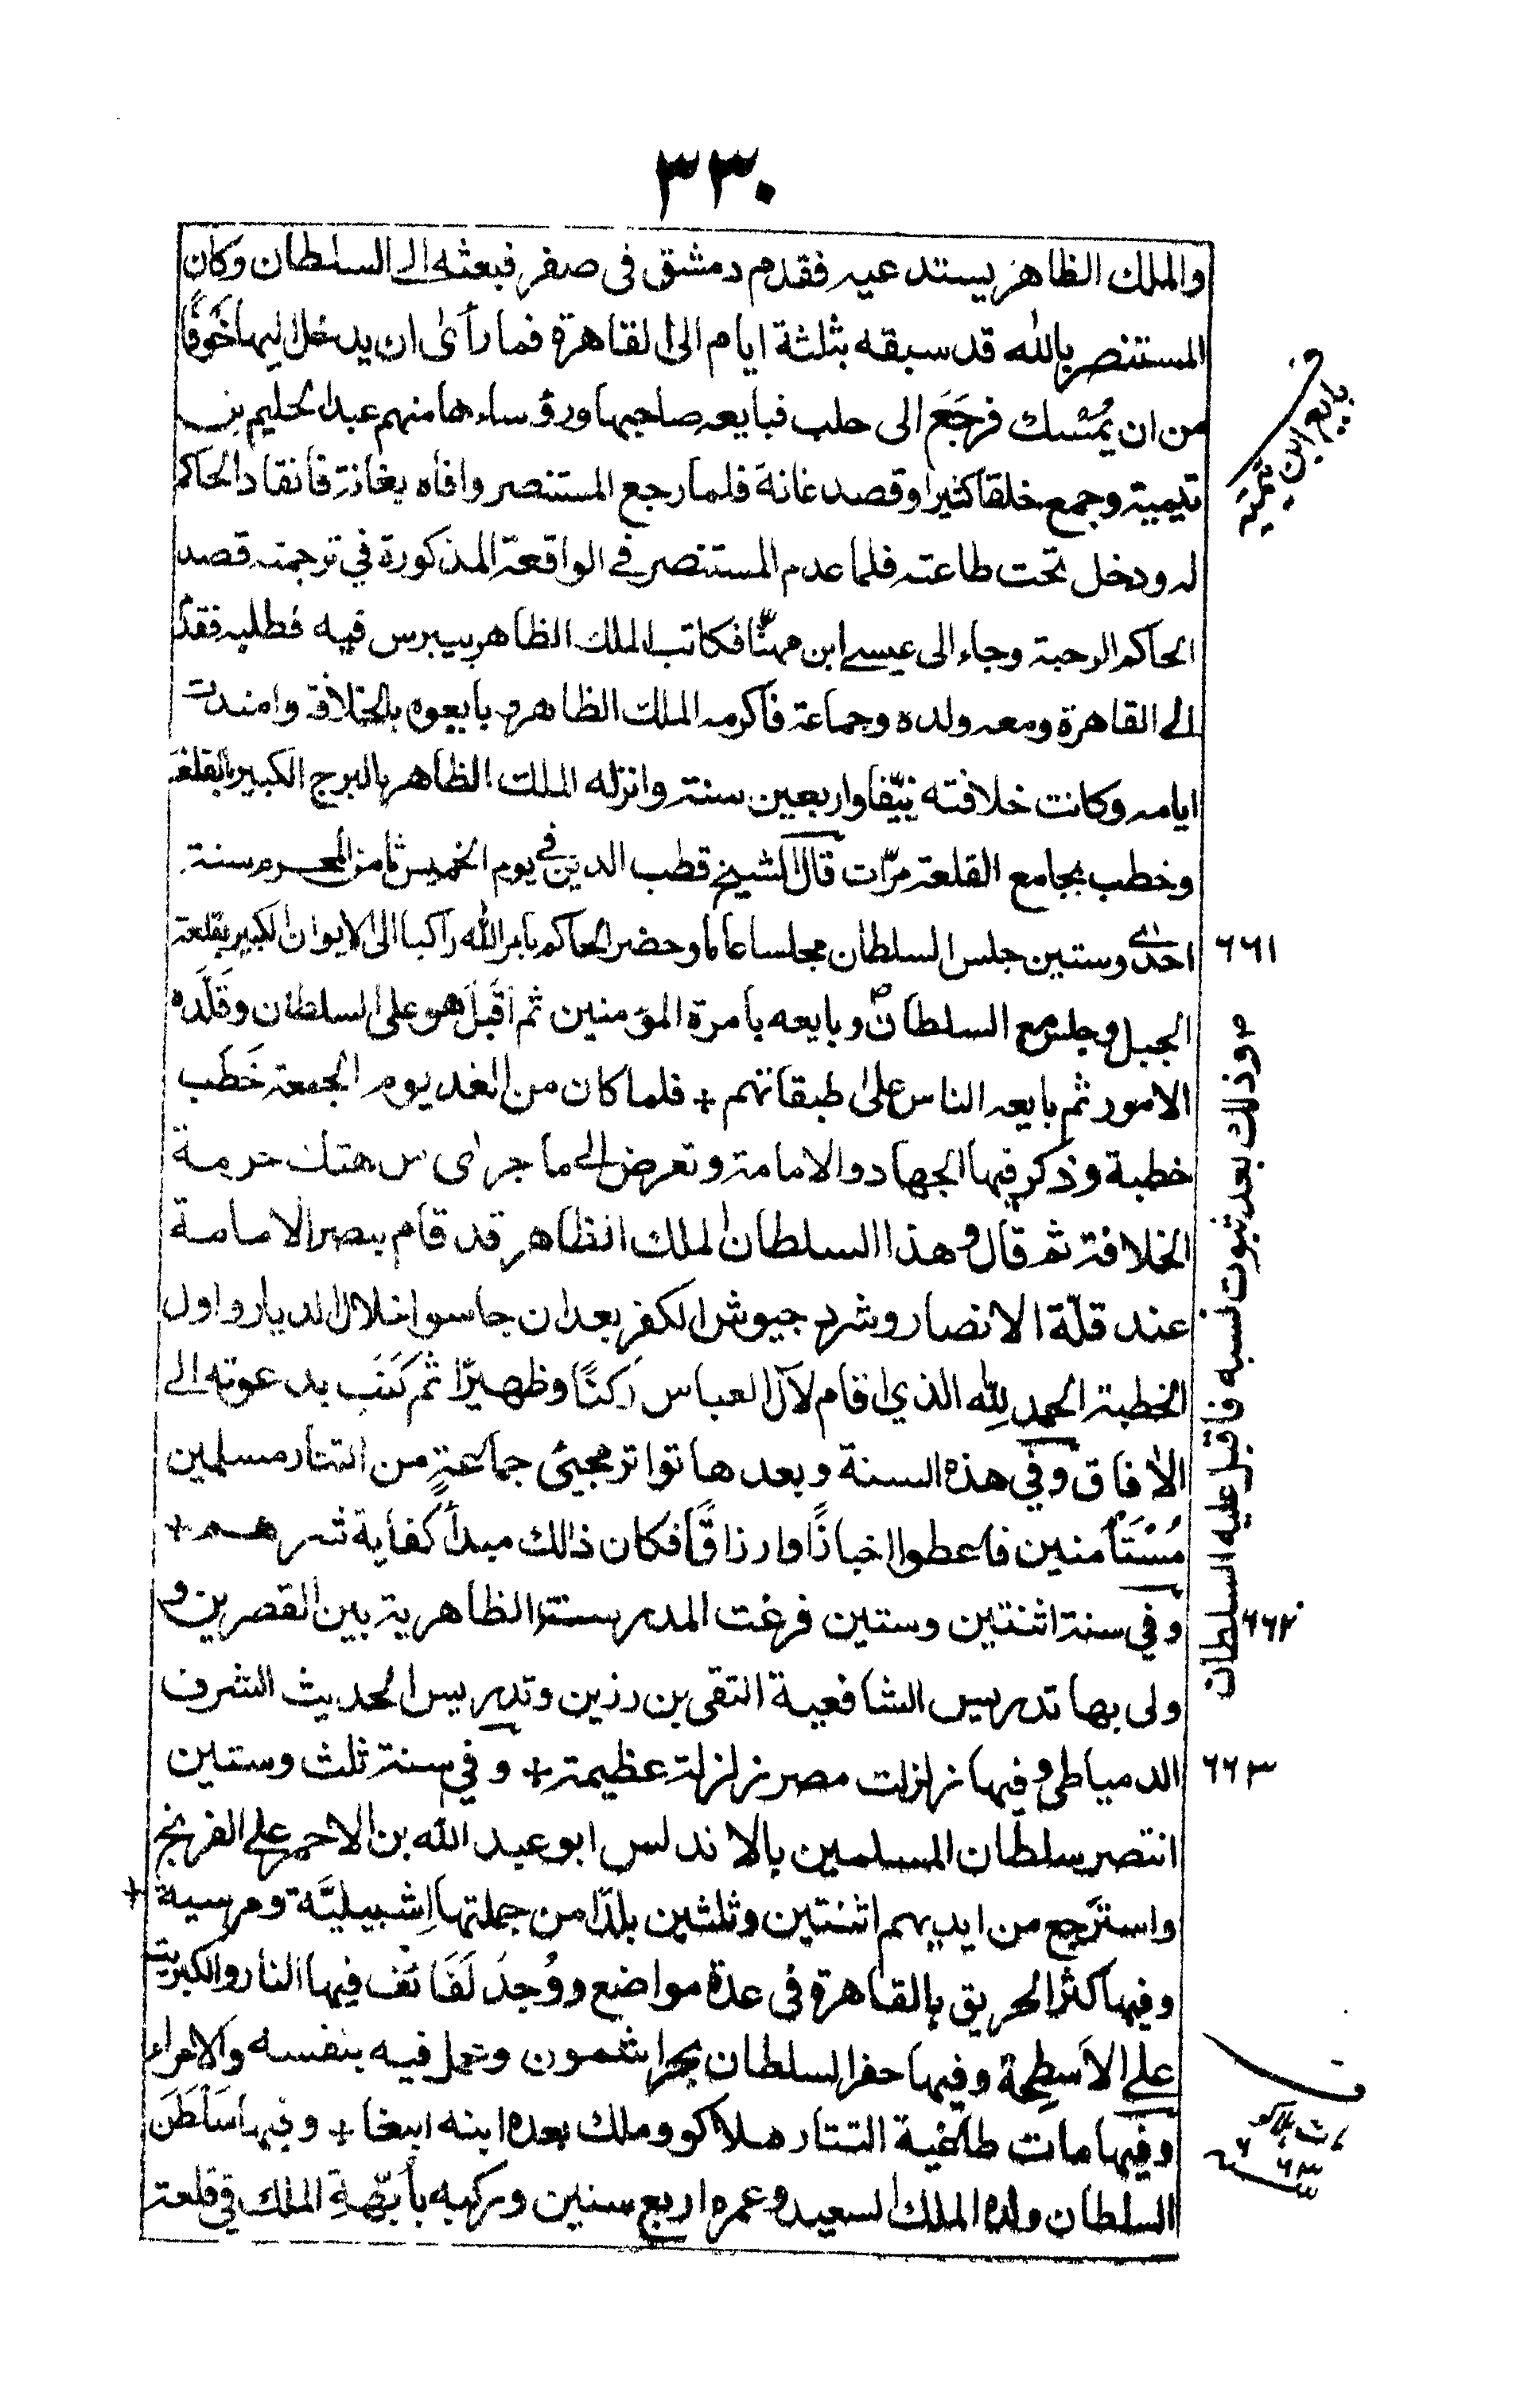 ٣٣٠
والملك الظاهر يستدعيه فقدم دمشق فى صفر فبعثه الى السلطان وكان
المستنصر بالله قد سبقه بثلثة ايام الى القاهرة فما رأى ان يدخل اليها خَوفًا
من ان يُمْسَك فرجَعَ الى حلب فبايعه صاحبها ورؤساءها منهم عبد الحليم بن
تيمية وجمع خلقا كثيرا وقصد غانة فلما رجع المستنصر وافاه بغانة فانقاد الحاكم
له ودخل تحت طاعته فلما عدم المستنصر في الواقعة المذكورة في ترجمته قصد
الحاكم الرحبة وجاء الى عيسى ابن مهنّا فكاتب الملك الظاهر بيبرس فيه فطلبه فقدم
الى القاهرة ومعه ولده وجماعة فاكرمه الملك الظاهر وبايعوه بالخلافة وامتدت
ايامه وكانت خلافته نيّفا واربعين سنة وانزله الملك الظاهر بالبرج الكبير بالقلعة
وخطب بجامع القلعة مرّات قال الشيخ قطب الدين في يوم الخميس ثامن المحرم سنة
احدى وستين جلس السلطان مجلسا عاما وحضر الحاكم بامر الله راكبا الى الايوان الكبير بقلعة
الجبل وجلس مع السلطان وبايعه بامرة المؤمنين ثم اَقبَلَ هو على السلطان وقَلّدَه
الامور ثم بايعه الناس على طبقاتهم + فلما كان من الغد يوم الجمعة خَطَب
خطبة وذكر فيها الجهاد والامامة وتعرض الى ما جرى من هتك حرمة
الخلافة ثم قال وهذا السلطان الملك الظاهر قد قام بنصر الامامة
عند قلّة الانصار وشرد جيوش الكفر بعد ان جاسوا خلال الديار واول
الخطبة الحمد لله الذي اقام لآل العباس ركنًا وظهيرًا ثم كَتَبَ بدعوته الى
الآفاق وفي هذه السنة وبعدها تواتر مجيئ جماعةٍ من التتار مسلمين
مُسْتَأْمنين فاعطوا اخبازًا وارزاقًا فكان ذالك مبدأ كفاية شرهم +
وفي سنة اثنتين وستين فرغت المدرسة الظاهرية بين القصرين و
ولى بها تدريس الشافعية التقى بن رزين وتدريس الحديث الشرف
الدمياطى وفيها زلزلت مصر زلزلة عظيمة + وفي سنة ثلث وستين
انتصر سلطان المسلمين بالاندلس ابو عبد الله بن الاحمر على الفرنج
واسترجع من ايديهم اثنتين وثلثين بلدًا من جملتها اِشبيليَّة ومرسية +
وفيها كثر الحريق بالقاهرة فى عدة مواضع ووُجدَ لَفَائف فيها النار والكبريت
على الاَسطِحة وفيها حفر السلطان بحر اشمون وعمل فيه بنفسه والامراء
وفيها مات طاغية التتار هلاكو وملك بعده ابنه ابغا + وفيها سَلْطَنَ
السلطان ولده الملك السعيد وعمره اربع سنين وركبه بأبّهة الملك في قلعة
بايع ابن تيميه
٦٦١
وذلك بعد ثبوت نسبه فاقبل عليه السلطان
٦٦٢
٦٦٣
ف
مات هلاكو
٦٦٣